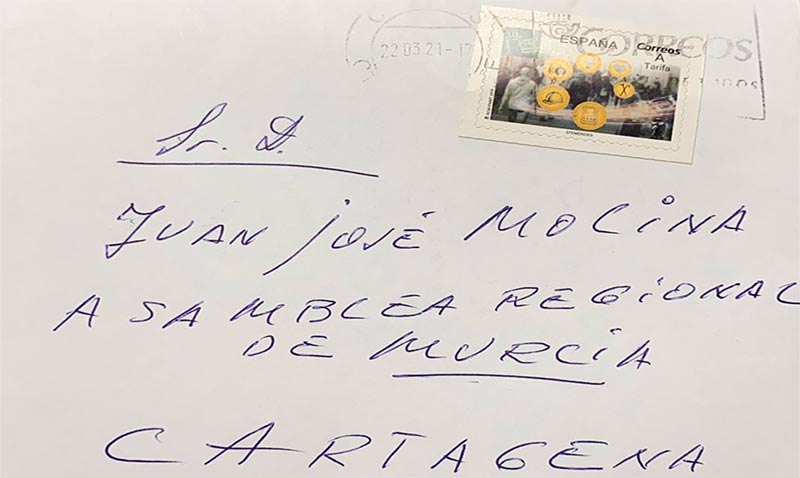 22 03 21-1
CORREOS
ESPAÑA
Correos
A
Tarifa
EFEMÉRIDES
Sr. D.
JUAN JOSÉ MOLINA
ASAMBLEA REGIONAL
DE MURCIA
CARTAGENA